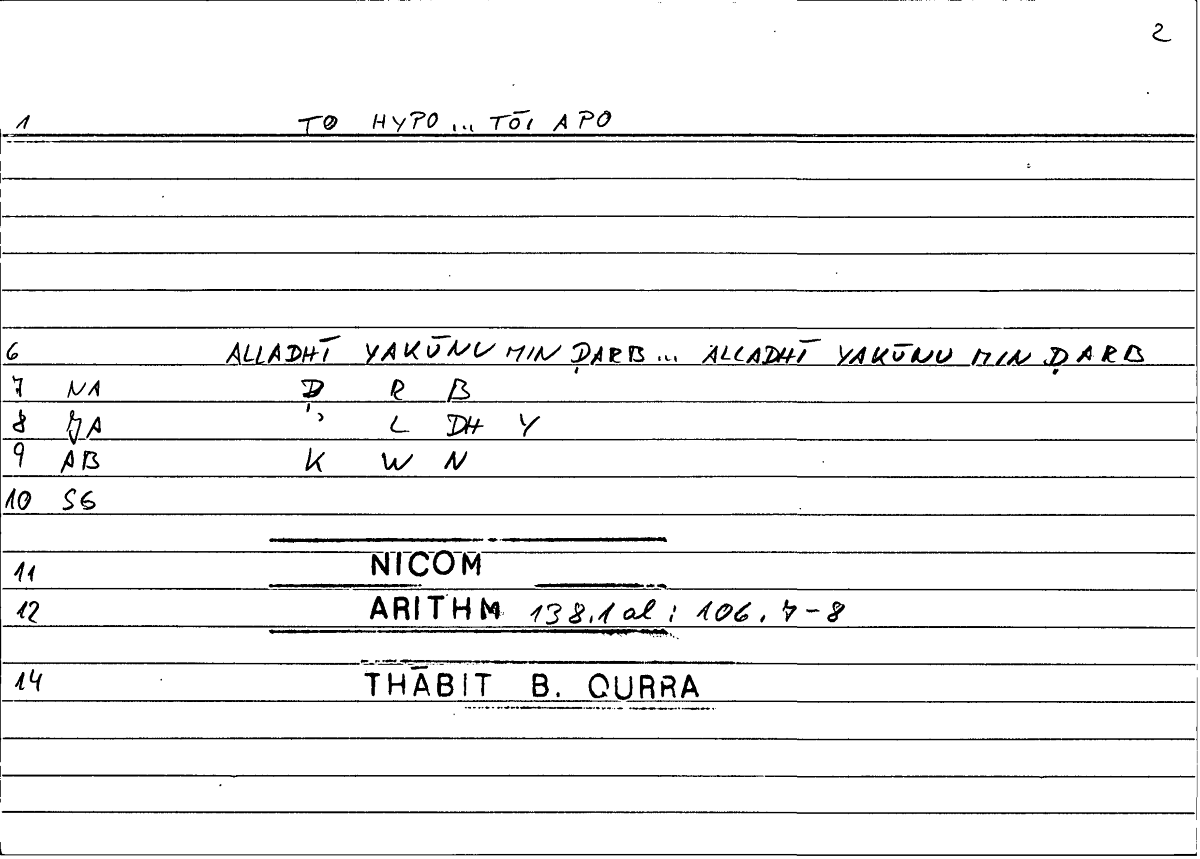 2
1 TO HYPO ... TŌI APO
6 ALLADHĪ YAKŪNU MIN ḌARB ... ALLADHĪ YAKŪNU MIN ḌARB
7 NA Ḍ R B
8 JA ʾ L DH Y
9 AB K W N
10 SG
11 NICOM
12 ARITHM 138.1 al : 106.7-8
14 THĀBIT B. QURRA